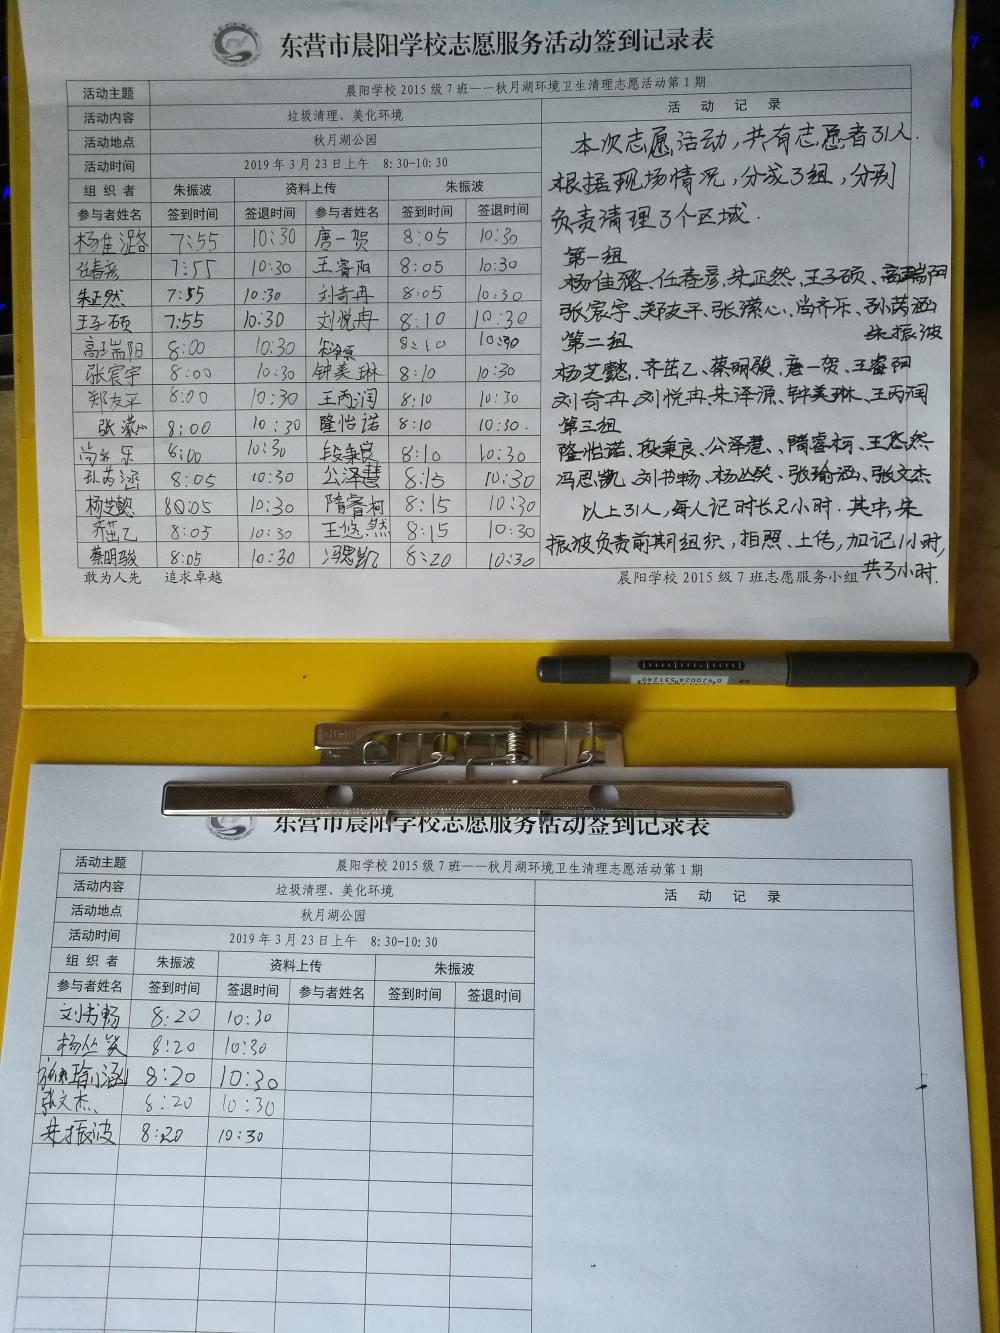 东营市晨阳学校志愿服务活动签到记录表
活动主题 晨阳学校 2015 级 7 班——秋月湖环境卫生清理志愿活动第 1 期
活动内容 垃圾清理、美化环境 活动记录
活动地点 秋月湖公园
活动时间 2019 年 3 月 23 日上午 8:30-10:30
组织者 朱振波 资料上传 朱振波
参与者姓名 签到时间 签退时间 参与者姓名 签到时间 签退时间
杨佳璐 7:55 10:30 唐一贺 8:05 10:30
任春彦 7:55 10:30 王睿阳 8:05 10:30
朱正然 7:55 10:30 刘奇冉 8:05 10:30
王子硕 7:55 10:30 刘悦冉 8:10 10:30
高瑞阳 8:00 10:30 朱泽源 8:10 10:30
张宸宇 8:00 10:30 钟美琳 8:10 10:30
郑友平 8:00 10:30 王丙润 8:10 10:30
张潆心 8:00 10:30 隆怡诺 8:10 10:30.
尚齐乐 8:00 10:30 段秉良 8:10 10:30
孙芮涵 8:05 10:30 公泽慧 8:15 10:30
杨芝懿 8:05 10:30 隋睿柯 8:15 10:30
齐茁乙 8:05 10:30 王悠然 8:15 10:30
蔡明骏 8:05 10:30 冯思凯 8:20 10:30
本次志愿活动,共有志愿者31人.
根据现场情况,分成3组,分别
负责清理3个区域.
第一组
杨佳璐、任春彦、朱正然、王子硕、高瑞阳
张宸宇、郑友平、张潆心、尚齐乐、孙芮涵
朱振波
第二组
杨芝懿、齐茁乙、蔡明骏、唐一贺、王睿阳
刘奇冉、刘悦冉、朱泽源、钟美琳、王丙润
第三组
隆怡诺、段秉良、公泽慧、隋睿柯、王悠然
冯思凯、刘书畅、杨丛笑、张瑜涵、张文杰
以上31人,每人记时长2小时.其中,朱
振波负责前期组织,拍照、上传,加记1小时,
共3小时.
敢为人先 追求卓越 晨阳学校 2015 级 7 班志愿服务小组
东营市晨阳学校志愿服务活动签到记录表
活动主题 晨阳学校 2015 级 7 班——秋月湖环境卫生清理志愿活动第 1 期
活动内容 垃圾清理、美化环境 活动记录
活动地点 秋月湖公园
活动时间 2019 年 3 月 23 日上午 8:30-10:30
组织者 朱振波 资料上传 朱振波
参与者姓名 签到时间 签退时间 参与者姓名 签到时间 签退时间
刘书畅 8:20 10:30
杨丛笑 8:20 10:30
张瑜涵 8:20 10:30
张文杰 8:20 10:30
朱振波 8:20 10:30